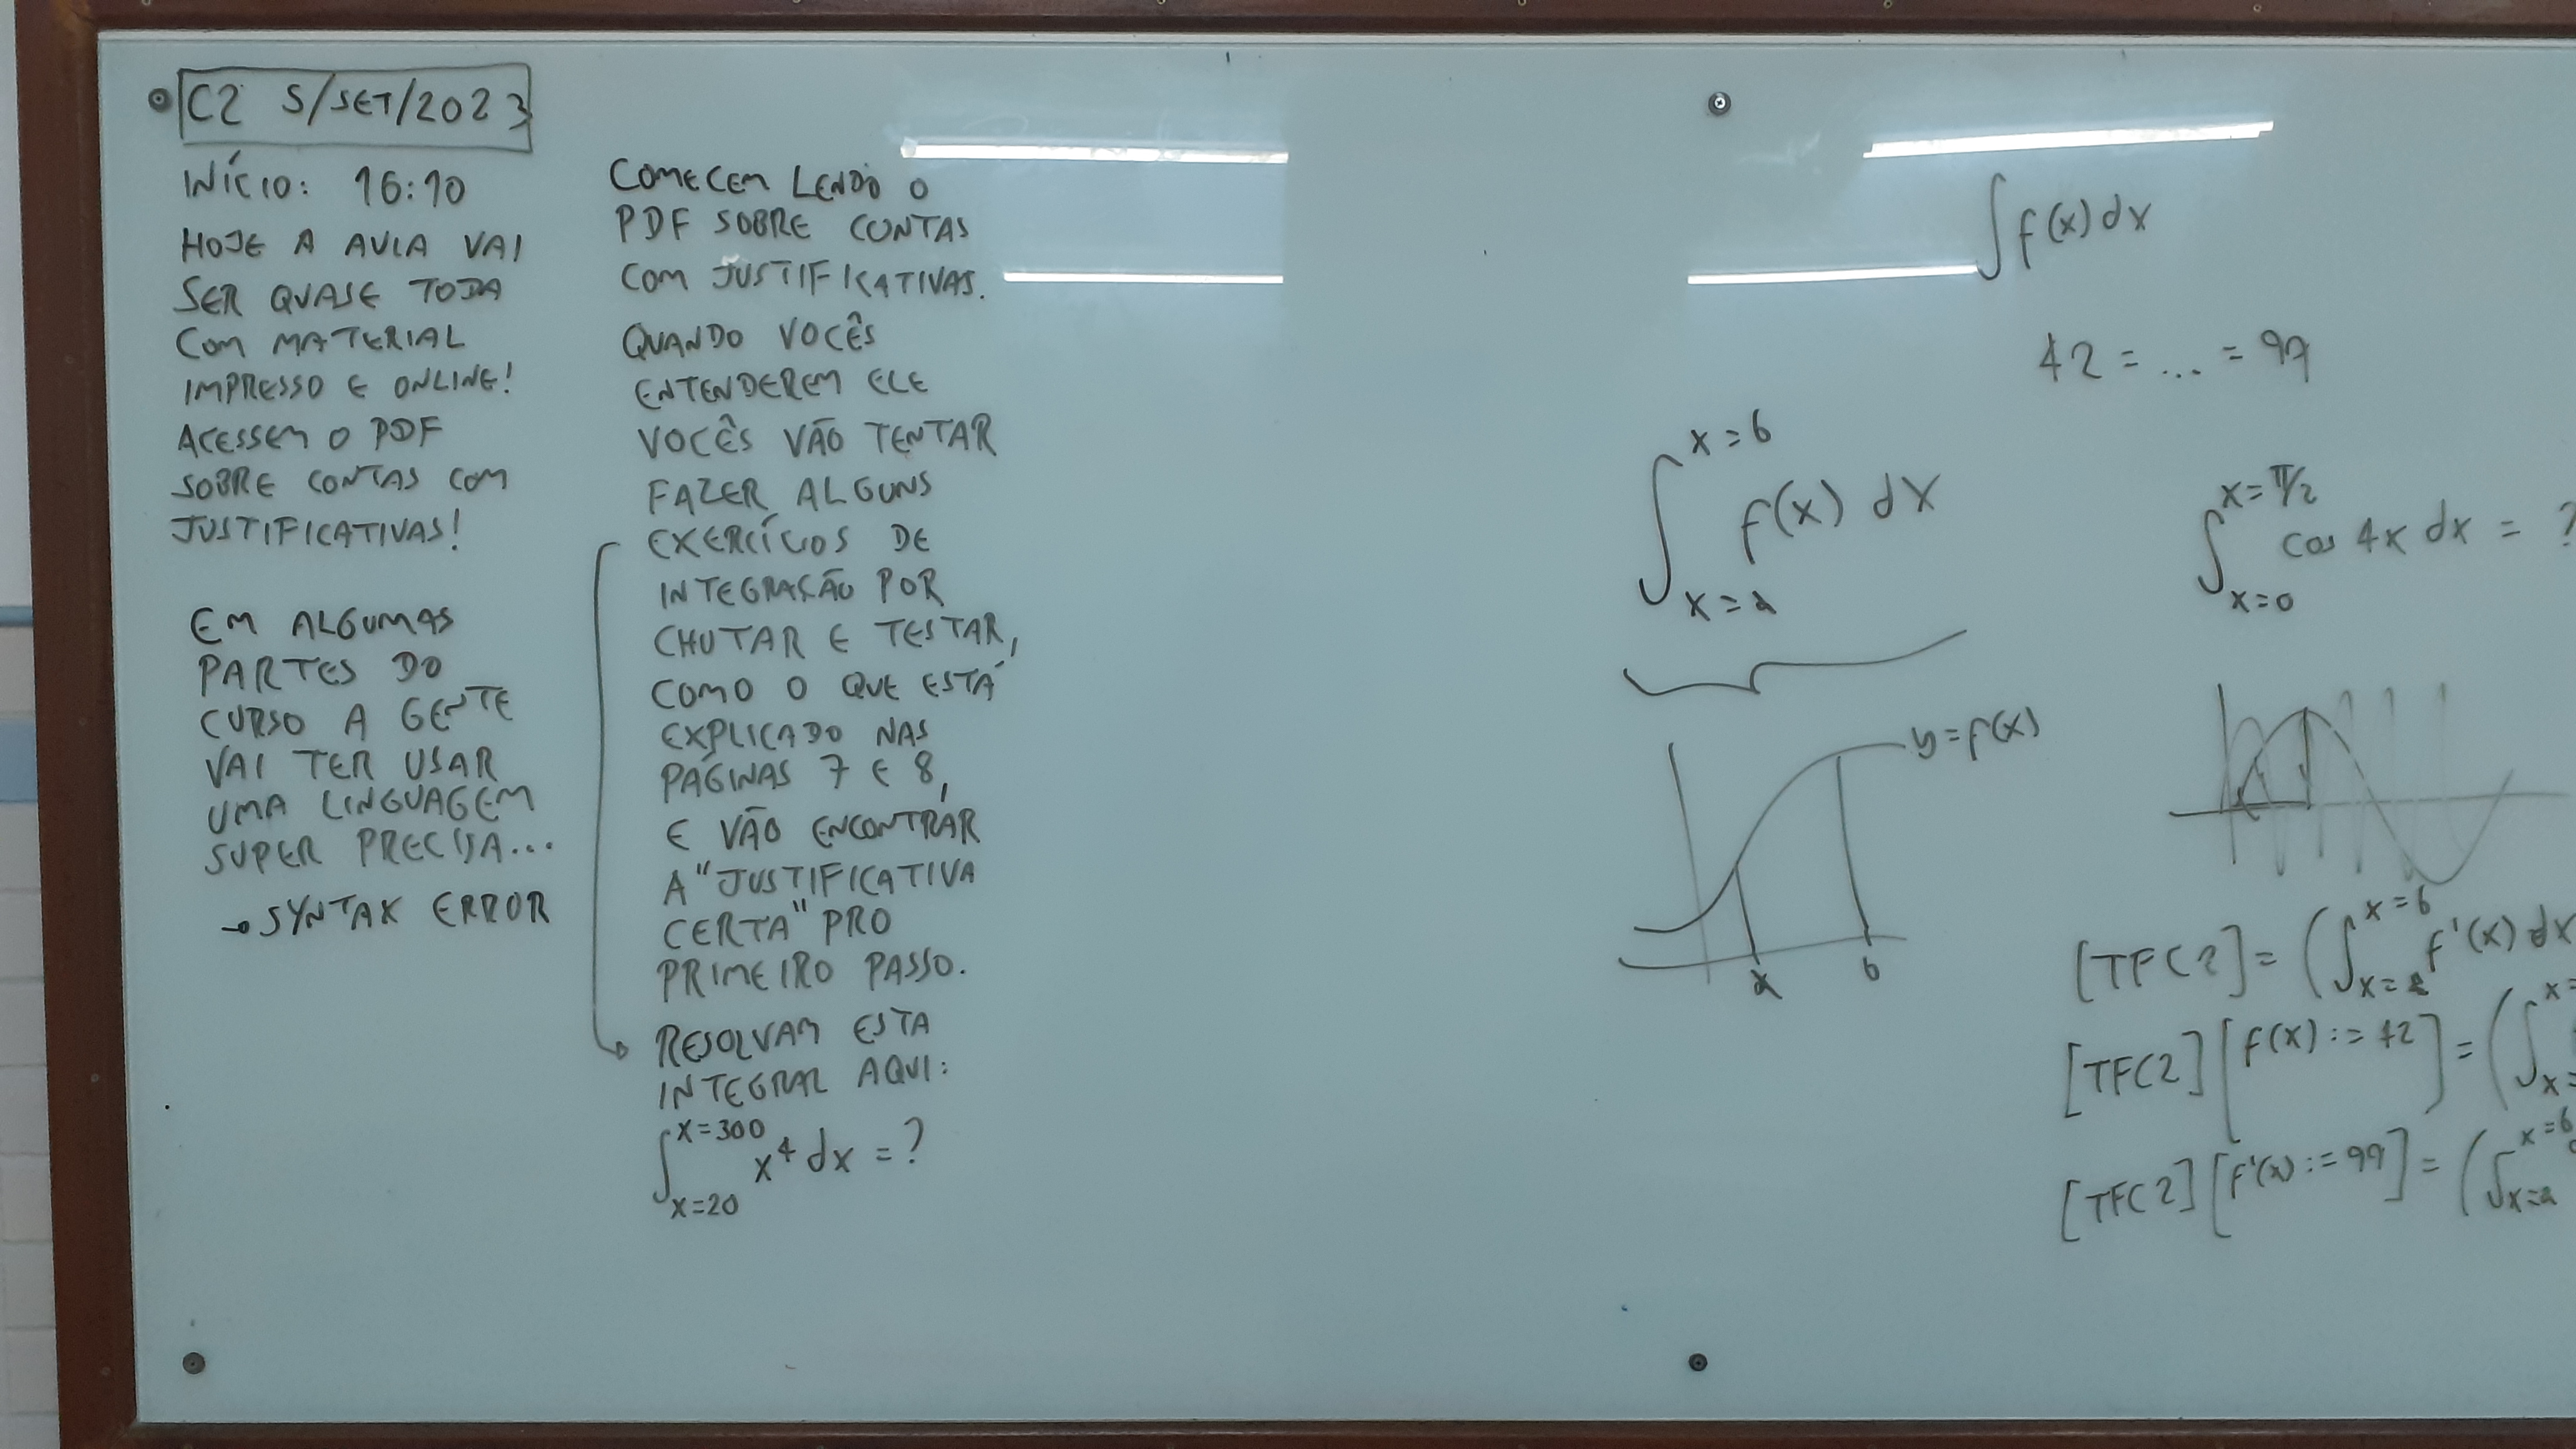 C2 5/SET/2023
INÍCIO: 16:10
HOJE A AULA VAI
SER QUASE TODA
COM MATERIAL
IMPRESSO E ONLINE!
ACESSEM O PDF
SOBRE CONTAS COM
JUSTIFICATIVAS!
EM ALGUMAS
PARTES DO
CURSO A GENTE
VAI TER USAR
UMA LINGUAGEM
SUPER PRECISA...
→ SYNTAX ERROR
COMECEM LENDO O
PDF SOBRE CONTAS
COM JUSTIFICATIVAS.
QUANDO VOCÊS
ENTENDEREM ELE
VOCÊS VÃO TENTAR
FAZER ALGUNS
EXERCÍCIOS DE
INTEGRAÇÃO POR
CHUTAR E TESTAR,
COMO O QUE ESTÁ
EXPLICADO NAS
PÁGINAS 7 E 8,
E VÃO ENCONTRAR
A "JUSTIFICATIVA
CERTA" PRO
PRIMEIRO PASSO.
RESOLVAM ESTA
INTEGRAL AQUI:
∫_{x=20}^{x=300} x⁴ dx = ?
∫ f(x) dx
42 = ... = 99
∫_{x=a}^{x=b} f(x) dx
y = f(x)
a b
∫_{x=0}^{x=π/2} cos 4x dx = ?
[TFC2] = (∫_{x=a}^{x=b} f'(x) dx
[TFC2] [f(x) := 42] = (∫ x= x=
[TFC2] [f'(x) := 99] = (∫_{x=a}^{x=b}